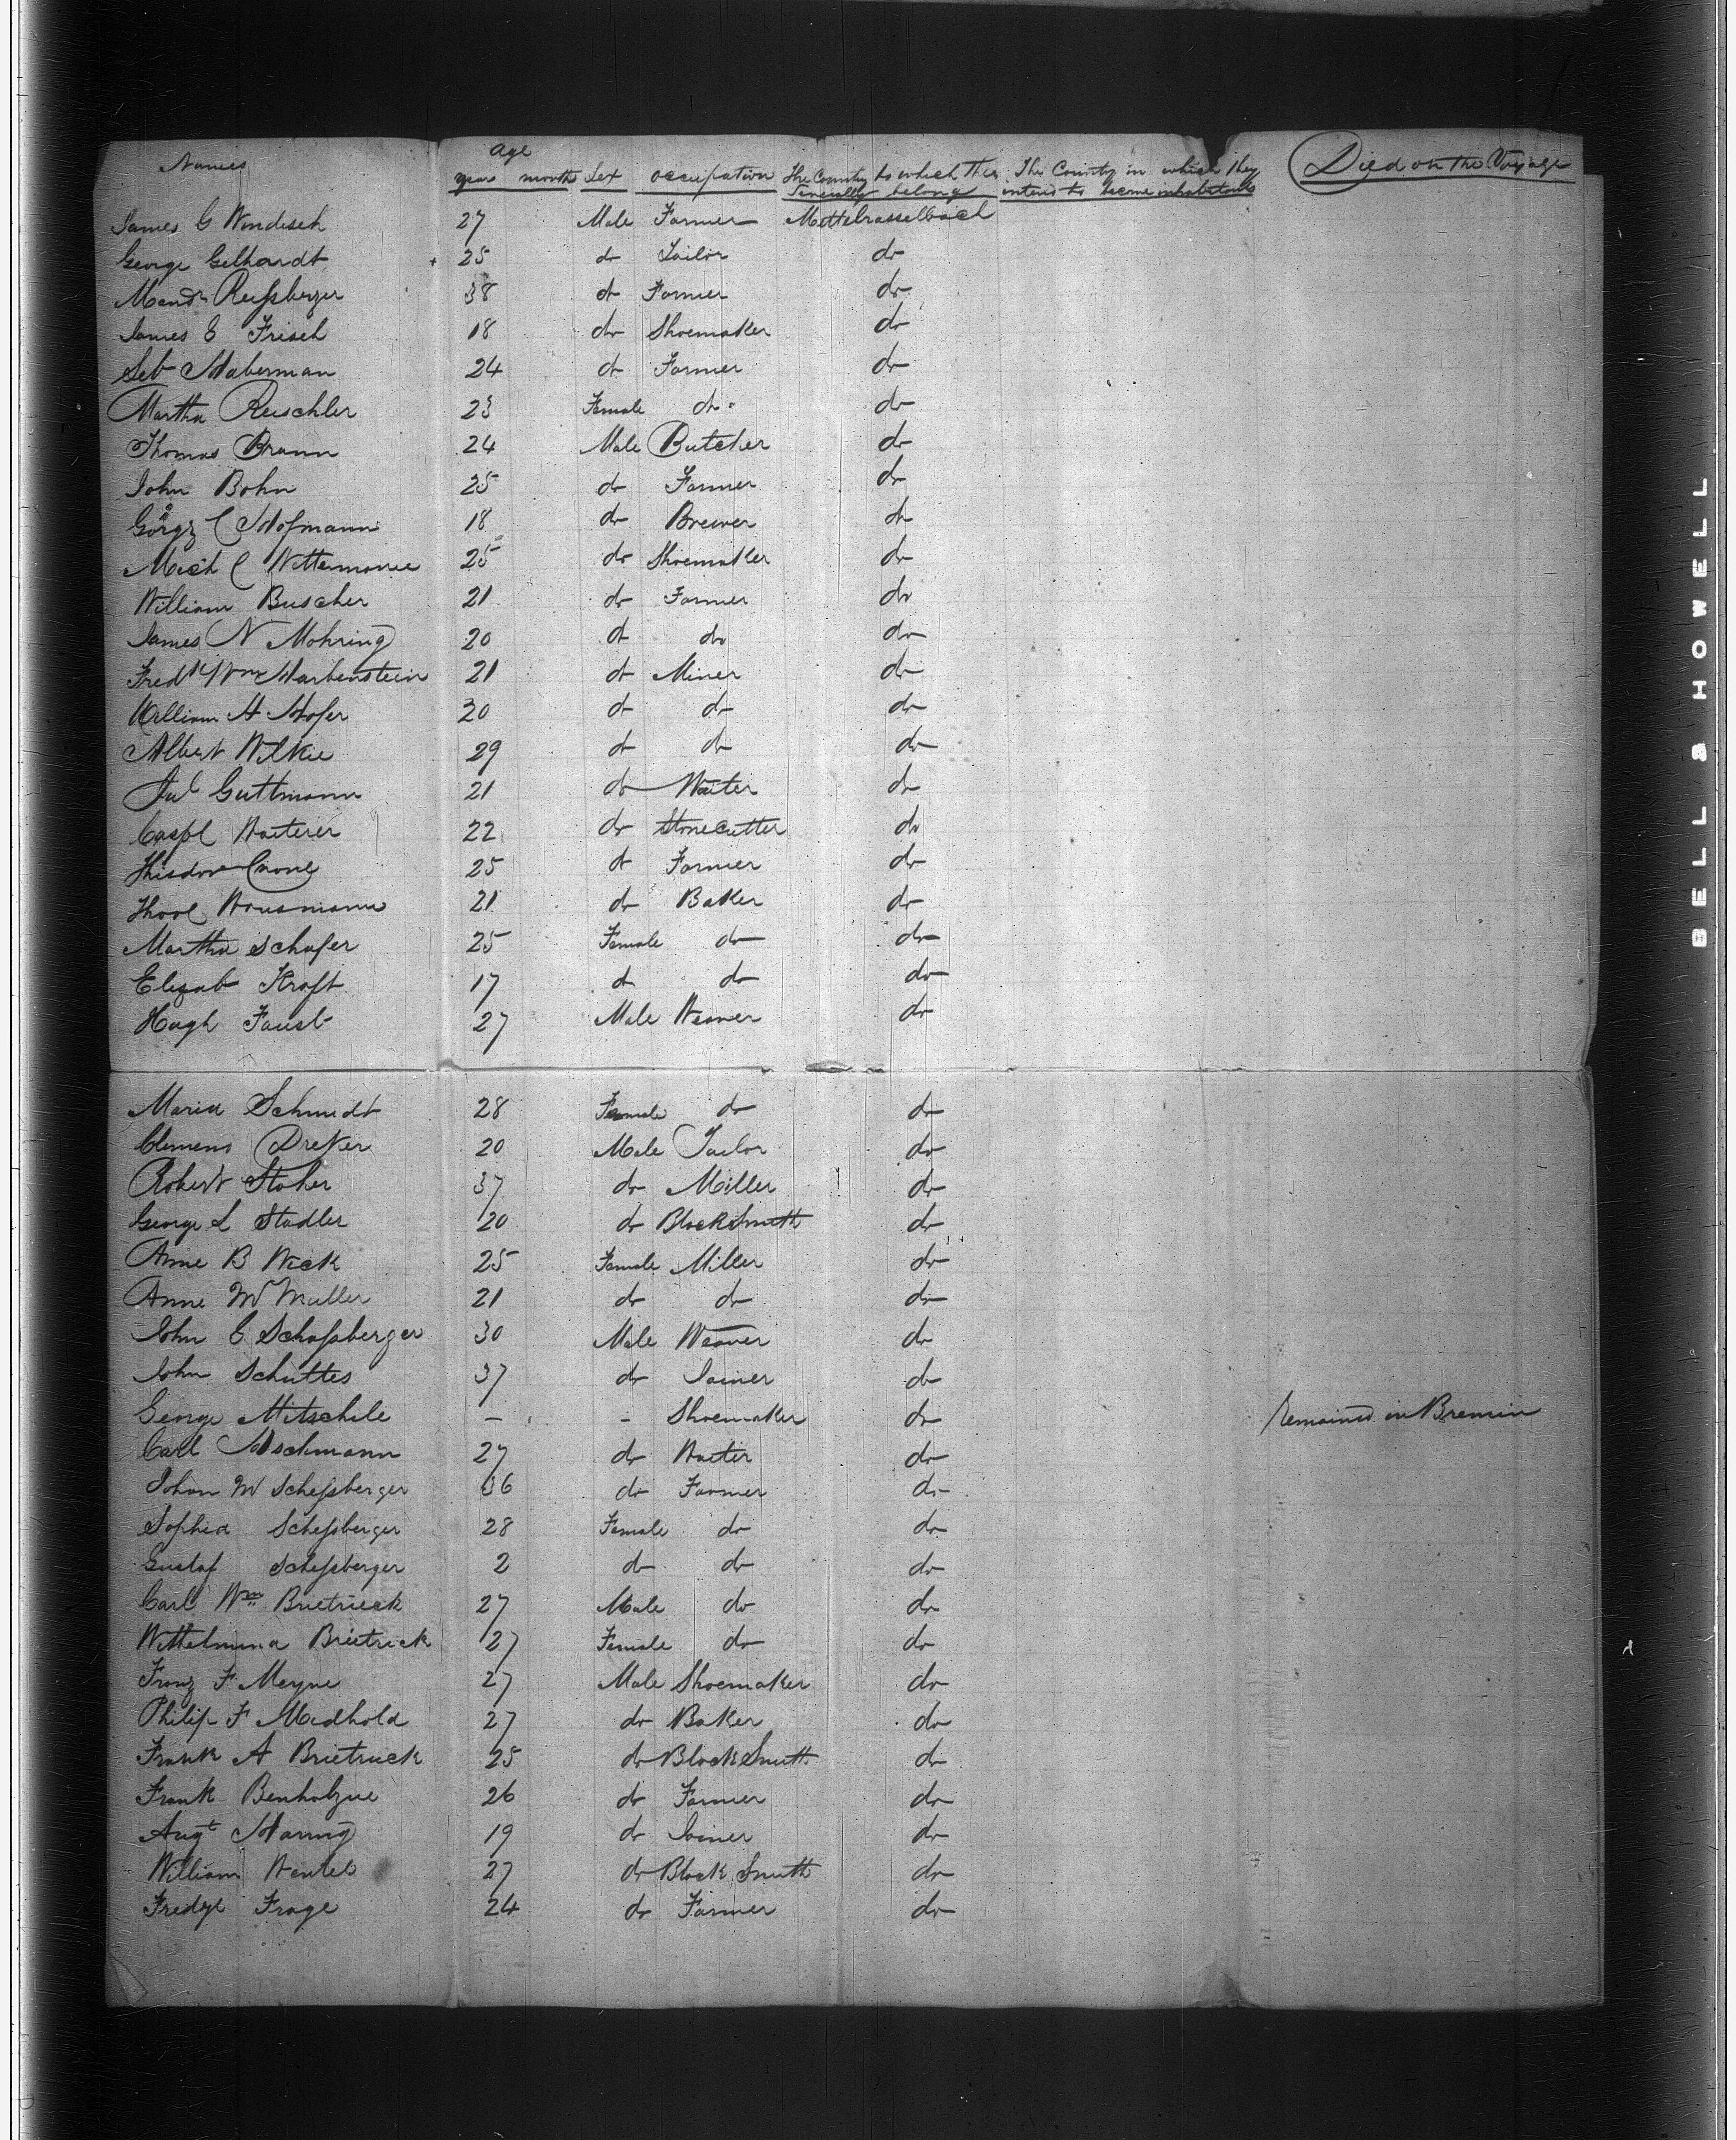 Names age years months Sex occupation The County to which they Severally belong The County in which they intend to become inhabitants Died on the Voyage
James G Windisch 27 Male Farmer Mettebrasselbach
George Gelhardt 25 do Tailor do
Reissberger 38 do Farmer do
James E Frisch 18 do Shoemaker do
Seb Haberman 24 do Farmer do
Martha Reischler 23 Female do do
Thomas Braun 24 Male Butcher do
John Bohn 25 do Farmer do
Görgz C Hofmann 18 do Brewer do
Mich C 25 do Shoemaker do
William Buscher 21 do Farmer do
James N Mohring 20 do do do
Fredk Wm Harbenstein 21 do Miner do
William H Hofer 20 do do do
Albert Wilkie 29 do do do
Jul Guttmann 21 do Waiter do
Waiterer 22 do Stonecutter do
Crone 25 do Farmer do
Hausmann 21 do Baker do
Martha Schafer 25 Female do do
Elizab Kraft 17 do do do
Hugh Faust 27 Male Weaver do
Maria Schmidt 28 Female do do
Clemens Dreker 20 Male Tailor do
Robert Stoher 37 do Miller do
George L Stadler 20 do BlackSmith do
Anne B Wick 25 Female Miller do
Anne M Muller 21 do do do
John C Schassberger 30 Male Weaver do
John Schuttes 37 do Joiner do
George Mitschele — - Shoemaker do Remained in Bremin
Carl Aschmann 27 do Waiter do
Johan M Schessberger 36 do Farmer do
Sophia Schessberger 28 Female do do
Gustaf Schessberger 2 do do do
Carl Wm Brietrieck 27 Male do do
Wittelmina Brietrieck 27 Female do do
Franz F Meyne 27 Male Shoemaker do
Philip F Madhold 27 do Baker do
Frank A Brietrieck 25 do BlackSmith do
Frank Benholzne 26 do Farmer do
Augt Haring 19 do Joiner do
William Wentels 27 do Black Smith do
Frage 24 do Farmer do
BELL & HOWELL